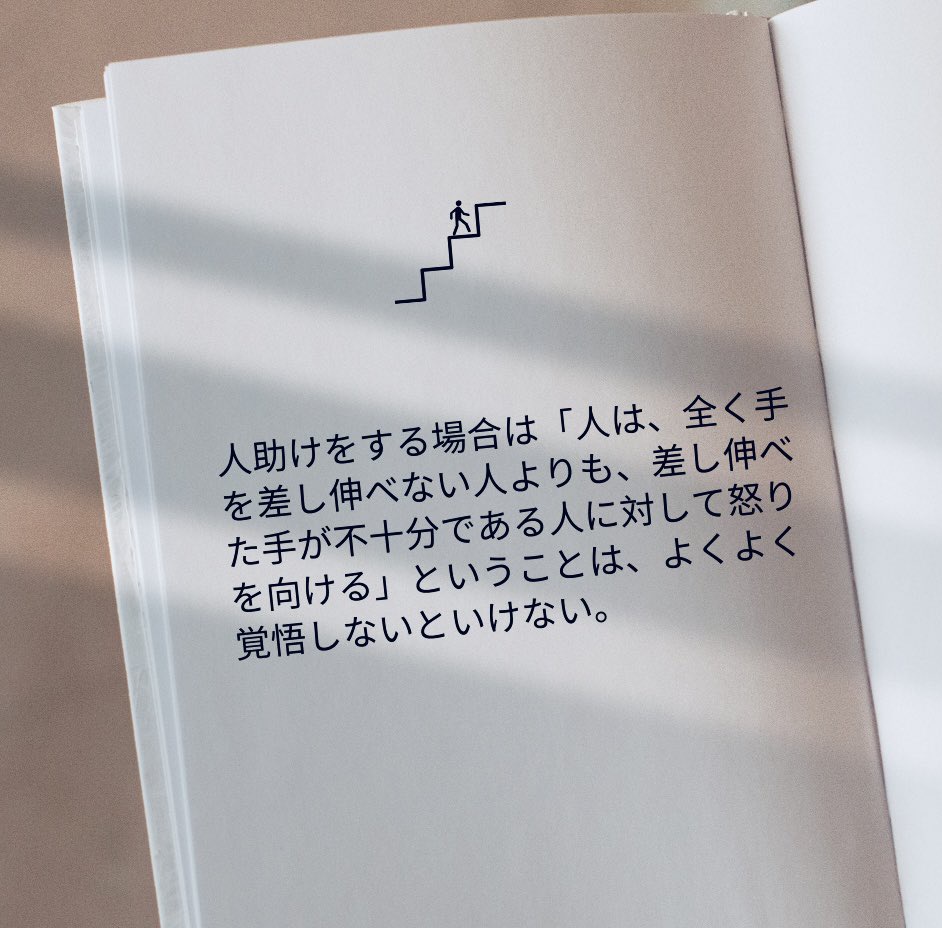 人助けをする場合は「人は、全く手
を差し伸べない人よりも、差し伸べ
た手が不十分である人に対して怒り
を向ける」ということは、よくよく
覚悟しないといけない。